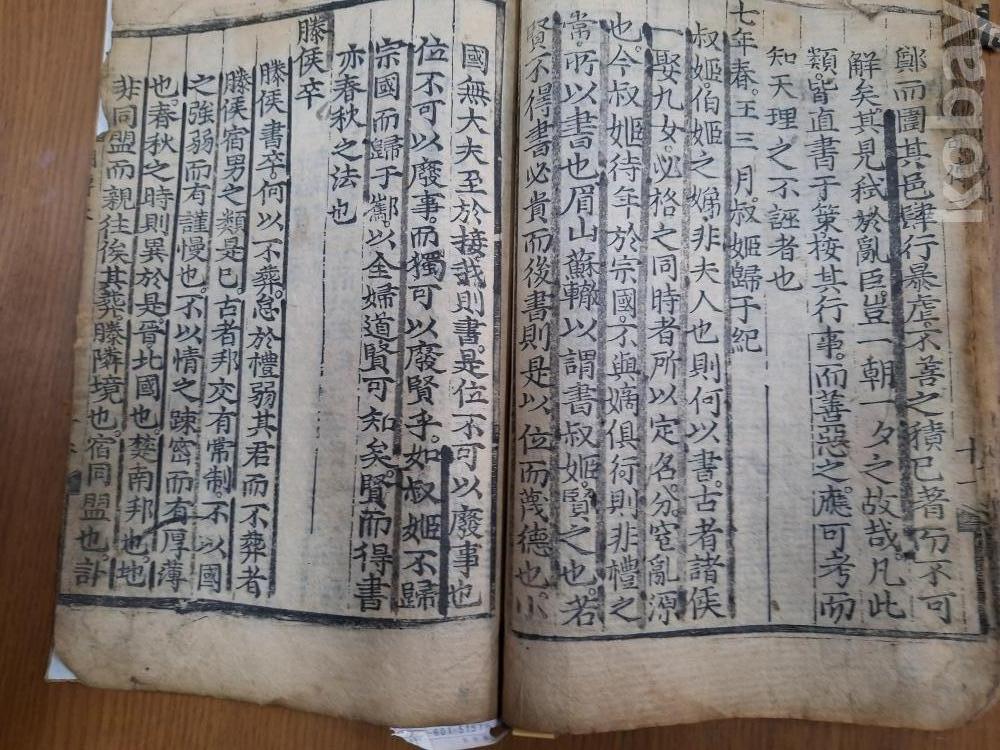 鄭而圍其邑肆行暴虐不善之積已著而不可
解矣其見弑於亂臣豈一朝一夕之故哉凡此
類皆直書于策按其行事而善惡之應可考而
知天理之不誣者也
七年春王三月叔姬歸于紀
叔姬伯姬之娣非夫人也則何以書古者諸侯
一娶九女必格之同時者所以定名分窒亂源
也今叔姬待年於宗國不與嫡俱行則非禮之
當所以書也眉山蘇轍以謂書叔姬賢之也若
賢不得書必貴而後書則是以位而蔑德也小
國無大夫至於接我則書是位不可以廢事也
位不可以廢事而獨可以廢賢乎如叔姬不歸
宗國而歸于酅以全婦道賢可知矣賢而得書
亦春秋之法也
滕侯卒
滕侯書卒何以不葬怠於禮弱其君而不葬者
滕侯宿男之類是已古者邦交有常制不以國
之強弱而有謹慢也不以情之踈密而有厚薄
也春秋之時則異於是晉北國也楚南邦也地
非同盟而親往俟其葬滕隣境也宿同盟也訃
十一
kobay
601-5157